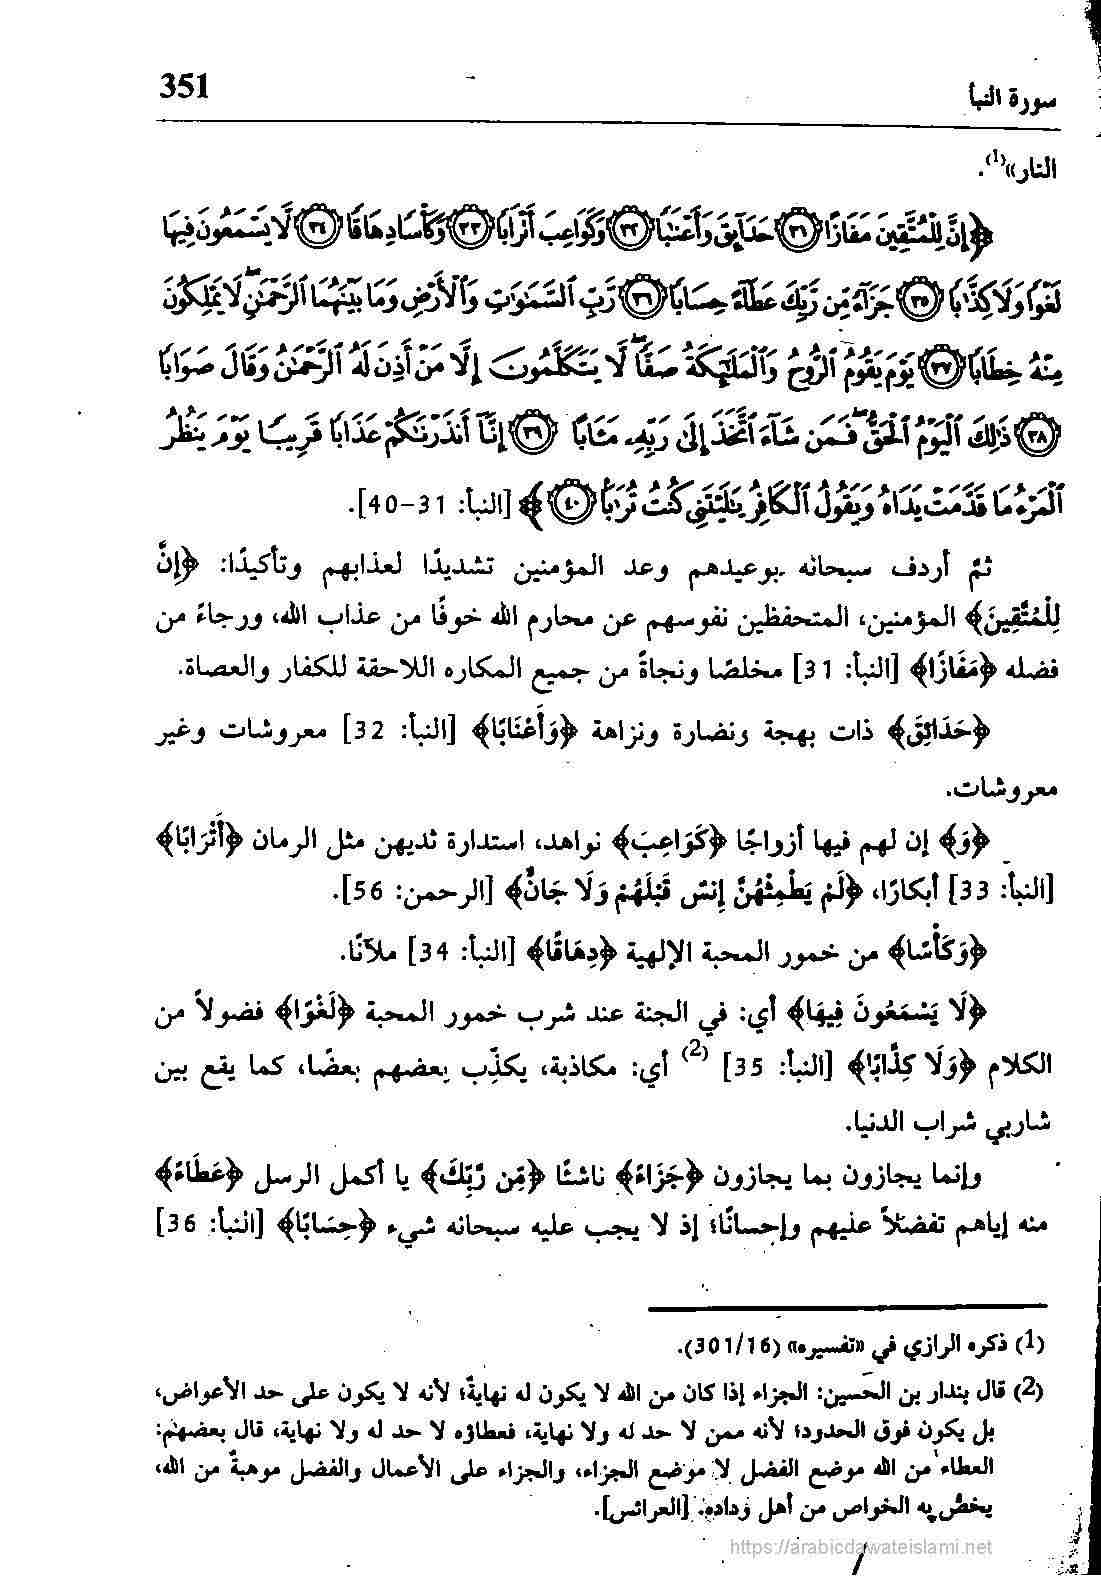 351
سورة النبأ
النار»(1).
﴿إِنَّ لِلْمُتَّقِينَ مَفَازًا ٣١ حَدَآئِقَ وَأَعْنَٰبًا ٣٢ وَكَوَاعِبَ أَتْرَابًا ٣٣ وَكَأْسًا دِهَاقًا ٣٤ لَّا يَسْمَعُونَ فِيهَا
لَغْوًا وَلَا كِذَّٰبًا ٣٥ جَزَآءً مِّن رَّبِّكَ عَطَآءً حِسَابًا ٣٦ رَّبِّ ٱلسَّمَٰوَٰتِ وَٱلْأَرْضِ وَمَا بَيْنَهُمَا ٱلرَّحْمَٰنِۖ لَا يَمْلِكُونَ
مِنْهُ خِطَابًا ٣٧ يَوْمَ يَقُومُ ٱلرُّوحُ وَٱلْمَلَٰٓئِكَةُ صَفًّاۖ لَّا يَتَكَلَّمُونَ إِلَّا مَنْ أَذِنَ لَهُ ٱلرَّحْمَٰنُ وَقَالَ صَوَابًا
٣٨ ذَٰلِكَ ٱلْيَوْمُ ٱلْحَقُّۖ فَمَن شَآءَ ٱتَّخَذَ إِلَىٰ رَبِّهِۦ مَـَٔابًا ٣٩ إِنَّآ أَنذَرْنَٰكُمْ عَذَابًا قَرِيبًا يَوْمَ يَنظُرُ
ٱلْمَرْءُ مَا قَدَّمَتْ يَدَاهُ وَيَقُولُ ٱلْكَافِرُ يَٰلَيْتَنِى كُنتُ تُرَٰبًا ٤٠﴾ [النبأ: 31-40].
ثمَّ أردف سبحانه بوعيدهم وعد المؤمنين تشديدًا لعذابهم وتأكيدًا: ﴿إِنَّ
لِلْمُتَّقِينَ﴾ المؤمنين، المتحفظين نفوسهم عن محارم الله خوفًا من عذاب الله، ورجاءً من
فضله ﴿مَفَازًا﴾ [النبأ: 31] مخلصًا ونجاةً من جميع المكاره اللاحقة للكفار والعصاة.
﴿حَدَائِقَ﴾ ذات بهجة ونضارة ونزاهة ﴿وَأَعْنَابًا﴾ [النبأ: 32] معروشات وغير
معروشات.
﴿وَ﴾ إن لهم فيها أزواجًا ﴿كَوَاعِبَ﴾ نواهد، استدارة ثديهن مثل الرمان ﴿أَتْرَابًا﴾
[النبأ: 33] أبكارًا، ﴿لَمْ يَطْمِثْهُنَّ إِنسٌ قَبْلَهُمْ وَلَا جَانٌّ﴾ [الرحمن: 56].
﴿وَكَأْسًا﴾ من خمور المحبة الإلهية ﴿دِهَاقًا﴾ [النبأ: 34] ملآنًا.
﴿لَا يَسْمَعُونَ فِيهَا﴾ أي: في الجنة عند شرب خمور المحبة ﴿لَغْوًا﴾ فضولاً من
الكلام ﴿وَلَا كِذَّابًا﴾ [النبأ: 35] (2) أي: مكاذبة، يكذِّب بعضهم بعضًا، كما يقع بين
شاربي شراب الدنيا.
وإنما يجازون بما يجازون ﴿جَزَاءً﴾ ناشئًا ﴿مِّن رَّبِّكَ﴾ يا أكمل الرسل ﴿عَطَاءً﴾
منه إياهم تفضلاً عليهم وإحسانًا؛ إذ لا يجب عليه سبحانه شيء ﴿حِسَابًا﴾ [النبأ: 36]
(1) ذكره الرازي في «تفسيره» (301/16).
(2) قال بندار بن الحسين: الجزاء إذا كان من الله لا يكون له نهايةٌ؛ لأنه لا يكون على حد الأعواض،
بل يكون فوق الحدود؛ لأنه ممن لا حد له ولا نهاية، فعطاؤه لا حد له ولا نهاية، قال بعضهم:
العطاء من الله موضع الفضل لا موضع الجزاء، والجزاء على الأعمال والفضل موهبةٌ من الله،
يخصُّ به الخواص من أهل وداده. [العرائس].
https://arabicdawateislami.net